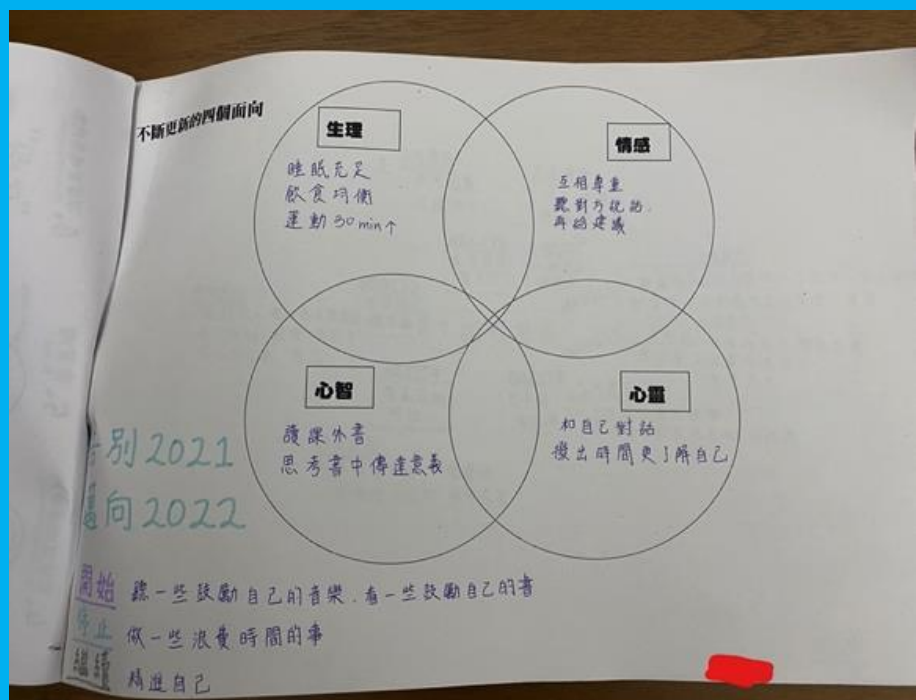 不斷更新的四個面向
生理
睡眠充足
飲食均衡
運動30min↑
情感
互相尊重
聽對方說話.
再給建議
心智
讀課外書
思考書中傳達意義
心靈
和自己對話
撥出時間更了解自己
別2021
邁向2022
開始 聽一些鼓勵自己的音樂.看一些鼓勵自己的書
停止 做一些浪費時間的事
繼續 精進自己